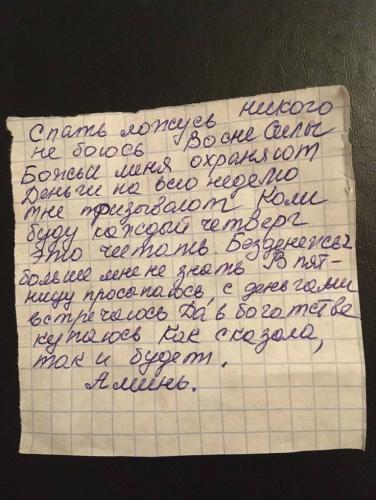 Спать ложусь никого
не боюсь Во сне Силы
Божьи меня охраняют
Деньги на всю неделю
мне призывают Коли
буду каждый четверг
это читать. Безденежья
больше мне не знать В пят-
ницу просыпаюсь, с деньгами
встречаюсь Да в богатстве
купаюсь Как сказала,
так и будет.
Аминь.